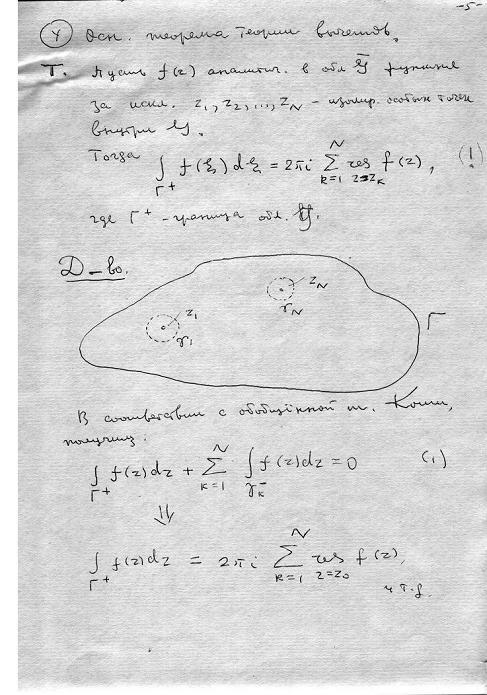 -5-
④ Осн. теорема теории вычетов.
Т. Пусть f(z) аналитич. в обл. 𝒢̄ функция
за искл. z₁, z₂, ..., z_N – изолир. особых точек
внутри 𝒢.
Тогда ∫_{Γ⁺} f(ξ)dξ = 2πi ∑_{k=1}^{N} res_{z=z_k} f(z), (!)
где Γ⁺ – граница обл. 𝒢̄.
Д-во.
z₁ γ₁ z_N γ_N Γ
В соответствии с обобщённой т. Коши,
получим:
∫_{Γ⁺} f(z)dz + ∑_{k=1}^{N} ∫_{γ_k⁻} f(z)dz = 0 (1)
⇓
∫_{Γ⁺} f(z)dz = 2πi ∑_{k=1}^{N} res_{z=z₀} f(z),
ч.т.д.